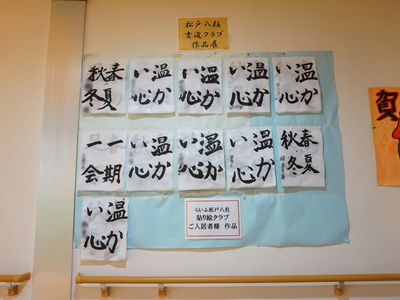 松戸八柱
書道クラブ
作品展
春夏
秋冬
温か
い心
温か
い心
温か
い心
温か
い心
一期
一会
温か
い心
温か
い心
温か
い心
春夏
秋冬
温か
い心
らいふ松戸八柱
貼り絵クラブ
ご入居者様 作品
賀